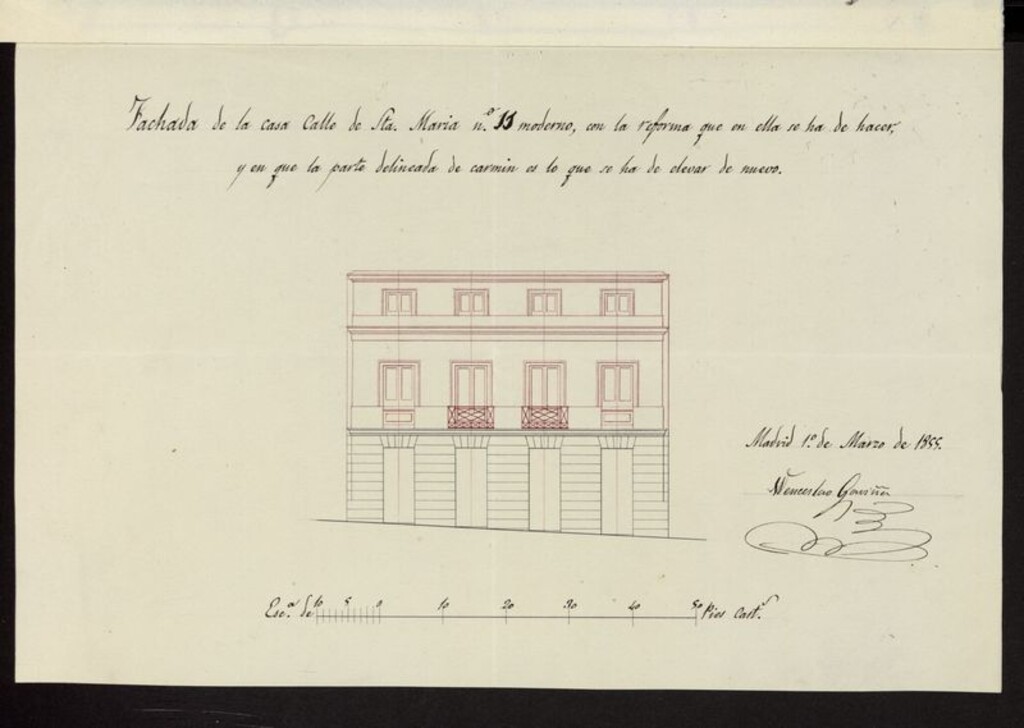 Fachada de la casa Calle de Sta. Maria n.º 11 moderno, con la reforma que en ella se ha de hacer,
y en que la parte delineada de carmin es lo que se ha de elevar de nuevo.
Madrid 1º de Marzo de 1855.
Wenceslao Gaviña
Esc.ª de 10 5 0 10 20 30 40 50 Pies Cast.s